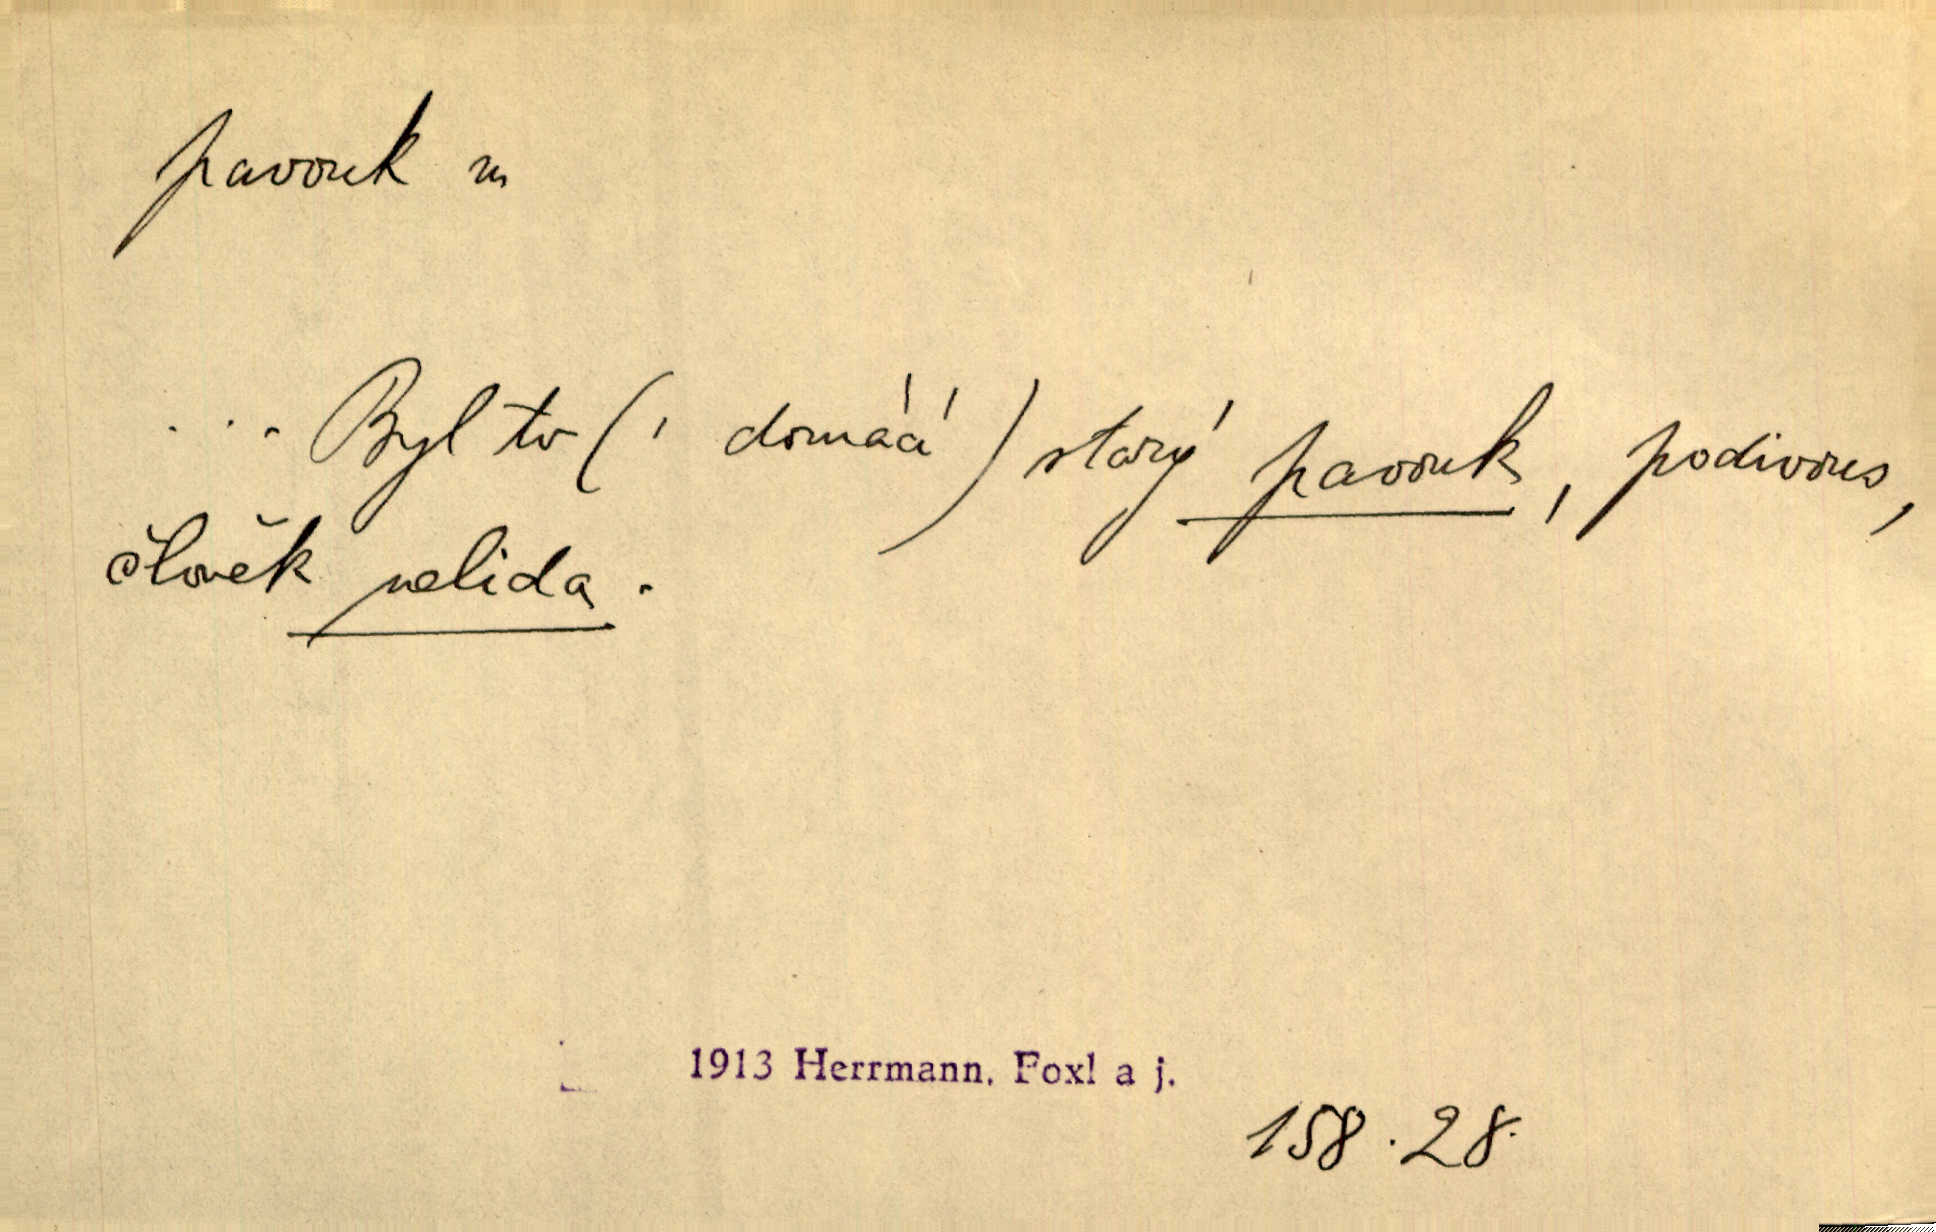 pavouk m
... Byl to (' domácí') starý pavouk, podivous,
člověk nelida.
1913 Herrmann, Foxl a j.
158.28.